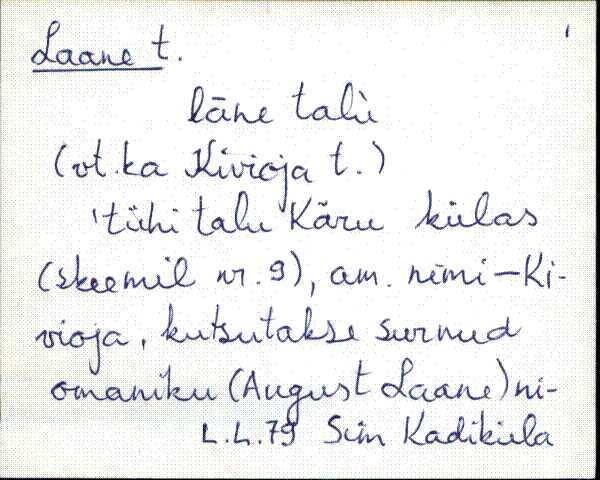 Laane t.
lāne talù
(vt. ka Kivioja t.)
'tühi talu Käru külas
(skeemil nr. 9), am. nimi - Ki-
vioja, kutsutakse surnud
omaniku (August Laane) ni-
L.L.79 Sim Kadiküla